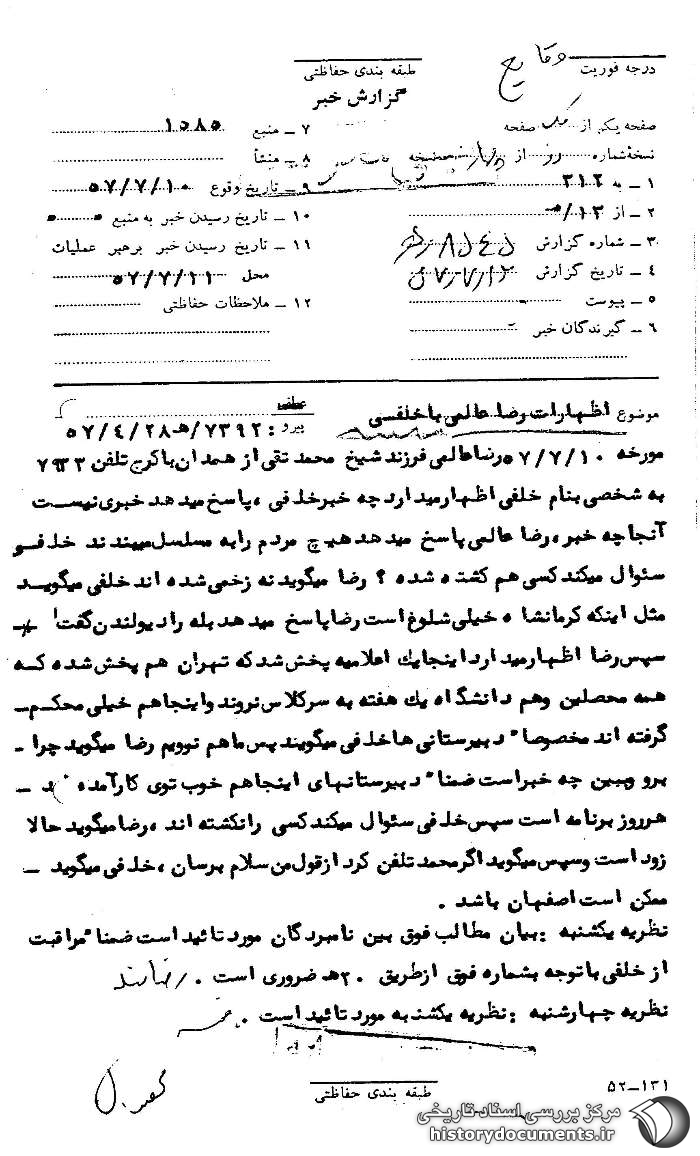 وقایع
درجه فوریت
طبقه بندی حفاظتی
گزارش خبر
صفحه یک از یک صفحه
نسخهٔ شماره از نسخه
۱ ـ به ۳۱۲
۲ ـ از ۱۳/ه
۳ ـ شماره گزارش
۴ ـ تاریخ گزارش ۵۷/۷/۱۲
۵ ـ پیوست
۶ ـ گیرندگان خبر
۷ ـ منبع ۱۵۸۵
۸ ـ منشأ
۹ ـ تاریخ وقوع ۵۷/۷/۱۰
۱۰ ـ تاریخ رسیدن خبر به منبع
۱۱ ـ تاریخ رسیدن خبر برهبر عملیات
محل ۵۷/۷/۱۱
۱۲ ـ ملاحظات حفاظتی
موضوع اظهارات رضا عالمی با خلفی
عطف
پیرو : ۷۳۹۲/ه‍ ـ ۵۷/۴/۲۸
مورخه ۵۷/۷/۱۰ رضا عالمی فرزند شیخ محمد تقی از همدان با کرج تلفن ۷۹۳۳
به شخصی بنام خلفی اظهار میدارد چه خبر خلفی ، پاسخ میدهد خبری نیست
آنجا چه خبر ، رضا عالمی پاسخ میدهد هیچ مردم را به مسلسل میبندند خلفی
سئوال میکند کسی هم کشته شده ؟ رضا میگوید نه زخمی شده اند خلفی میگوید
مثل اینکه کرمانشاه خیلی شلوغ است رضا پاسخ میدهد بله رادیو لندن گفت ـ
سپس رضا اظهار میدارد اینجا یك اعلامیه پخش شد که تهران هم پخش شده که
همه محصلین وهم دانشگاه یك هفته به سرکلاس نروند واینجا هم خیلی محکم ـ
گرفته اند مخصوصا" دبیرستانی ها خلفی میگویند پس ما هم نرویم رضا میگوید چرا ـ
برو وببین چه خبر است ضمنا" دبیرستانهای اینجا هم خوب توی کار آمده اند ـ
هرروز برنامه است سپس خلفی سئوال میکند کسی را نکشته اند ، رضا میگوید حالا
زود است وسپس میگوید اگر محمد تلفن کرد از قول من سلام برسان ، خلفی میگوید ـ
ممکن است اصفهان باشد .
نظریه یکشنبه : بیان مطالب فوق بین نامبردگان مورد تائید است ضمنا" مراقبت
از خلفی با توجه بشماره فوق از طریق ۲۰ ه‍ ضروری است .
نظریه چهارشنبه : نظریه یکشنبه مورد تائید است .
طبقه بندی حفاظتی
۵۲ـ۱۳۱
مرکز بررسی اسناد تاریخی
historydocuments.ir